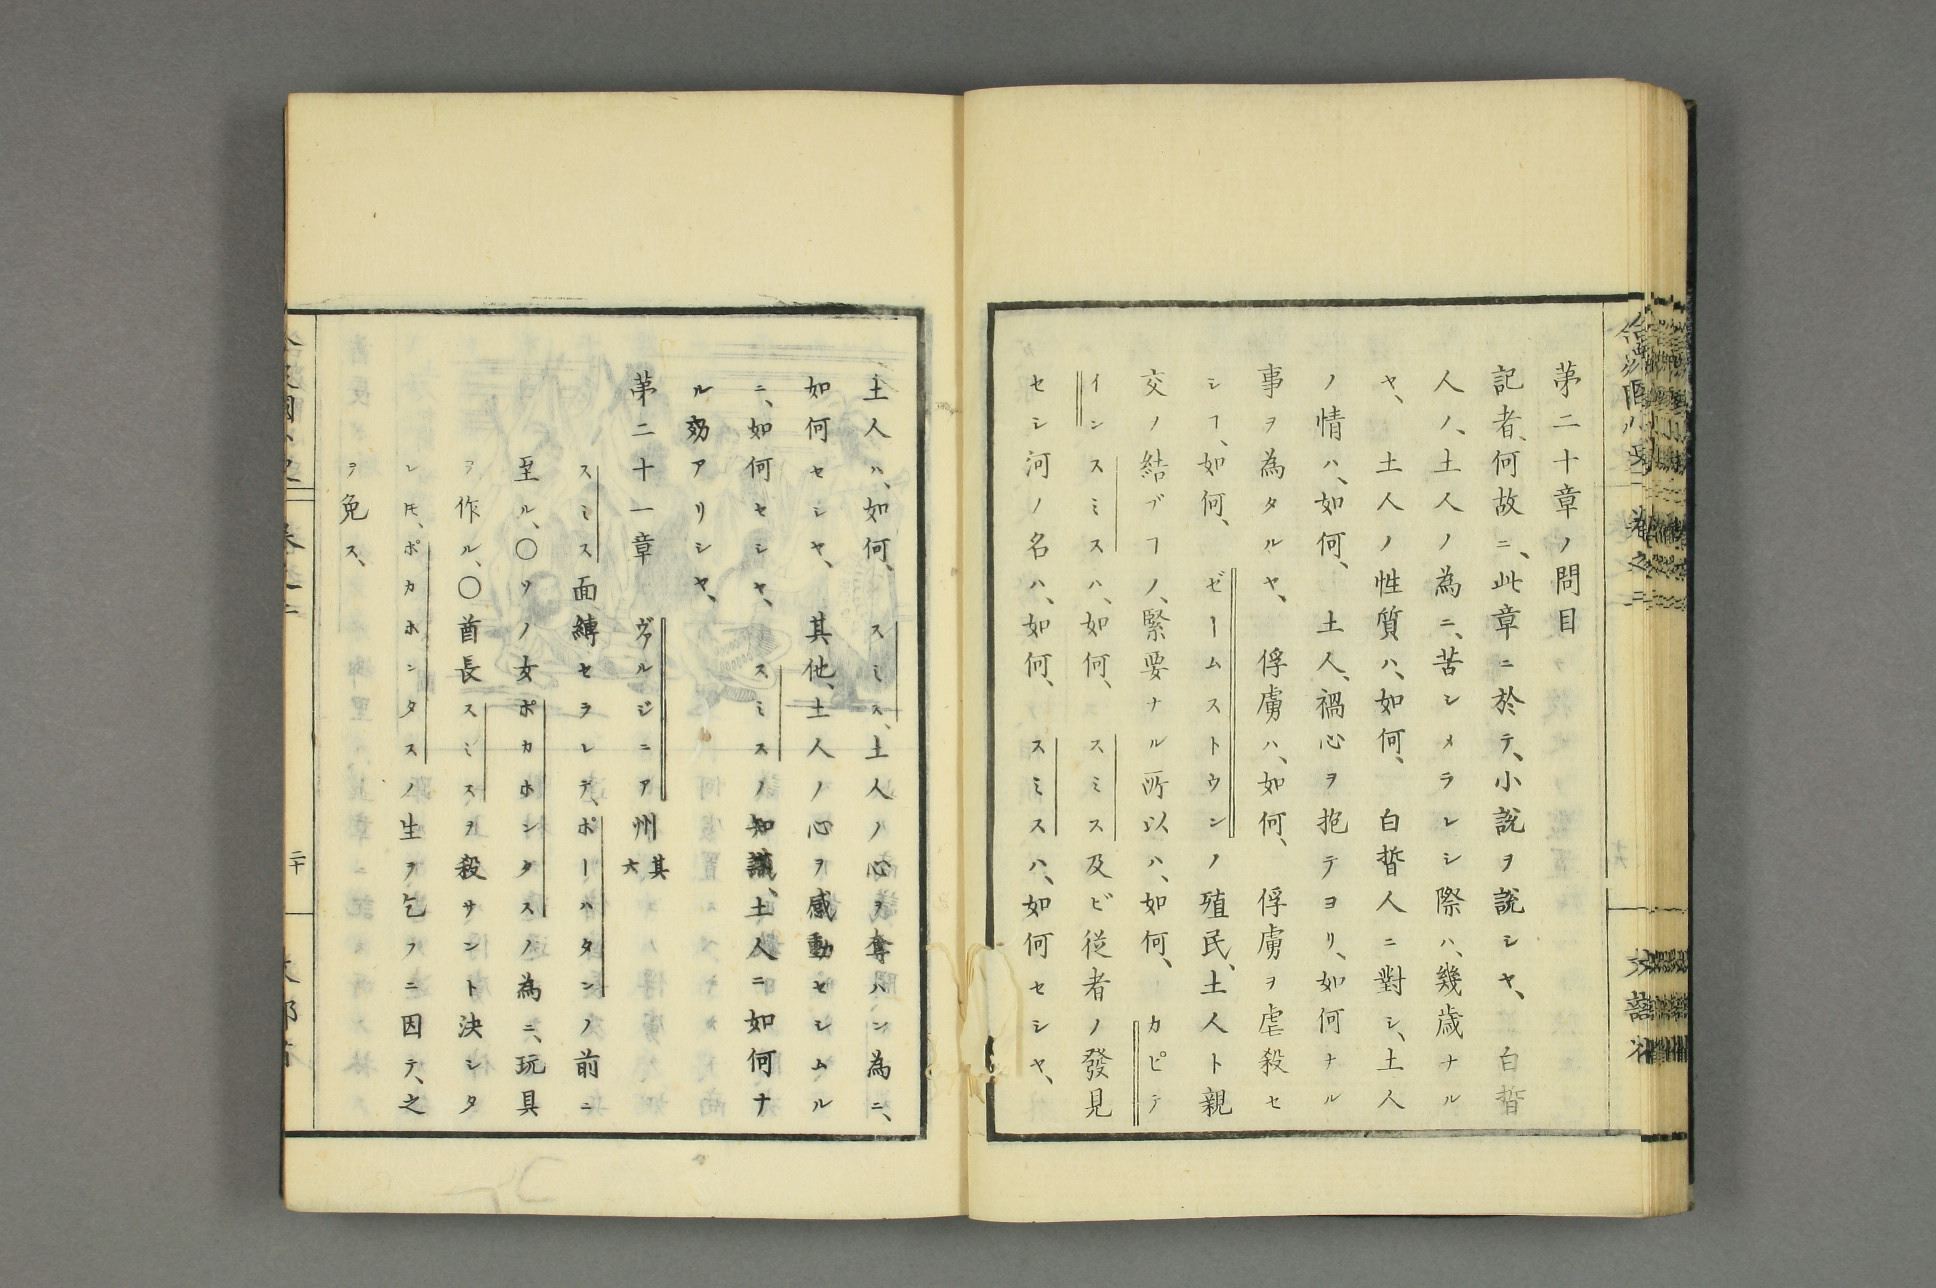 第二十章ノ問目
記者、何故ニ、此章ニ於テ、小説ヲ説シヤ、 白晳
人ノ、土人ノ為ニ、苦シメラレシ際ハ、幾歳ナル
ヤ、 土人ノ性質ハ、如何、 白晳人ニ對シ、土人
ノ情ハ、如何、 土人、禍心ヲ抱テヨリ、如何ナル
事ヲ為タルヤ、 俘虜ハ、如何、 俘虜ヲ虐殺セ
シヿ、如何、 ゼームストウンノ殖民、土人ト親
交ノ結ブヿノ、緊要ナル所以ハ、如何、 カピテ
インスミスハ、如何、 スミス及ビ従者ノ發見
セシ河ノ名ハ、如何、 スミスハ、如何セシヤ、
土人ハ、如何、 スミス、土人ノ心ヲ奪ハン為ニ、
如何セシヤ、 其他、土人ノ心ヲ感動セシムル
ニ、如何セシヤ、 スミスノ知識、土人ニ如何ナ
ル効アリシヤ、
第二十一章 ヴァルジニア州其六
スミス面縛セラレテ、ポーハタンノ前ニ
至ル、〇ソノ女ポカホンタスノ為ニ、玩具
ヲ作ル、〇酋長スミスヲ殺サントシ決シタ
レ𪜈、ポカホンタスノ生ヲ乞フニ因テ、之
ヲ免ス、
二十